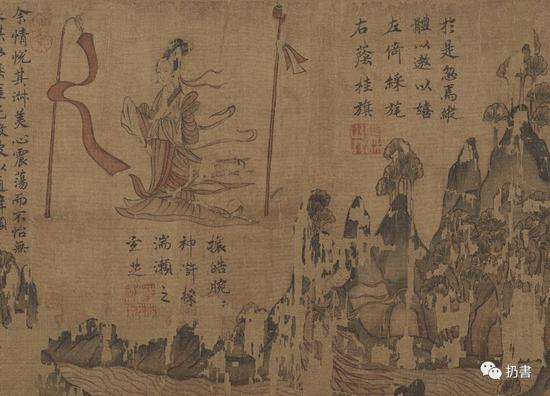 於是忽焉縱
體以遨以嬉
左倚綵旄
右蔭桂旗
攘皓腕
神滸採
湍瀨之
玄芝
余情悅其淑美心震蕩而不怡無
扔書